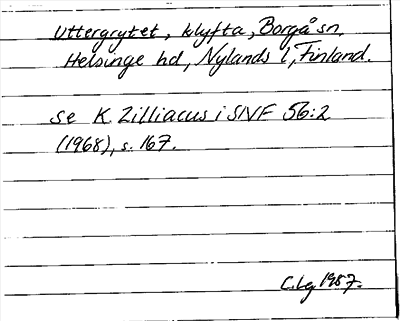 Uttergrytet, klyfta, Borgå sn,
Helsinge hd, Nylands l, Finland.
se K. Zilliacus i SNF 56:2
(1968), s. 167.
C.Lg 1987.